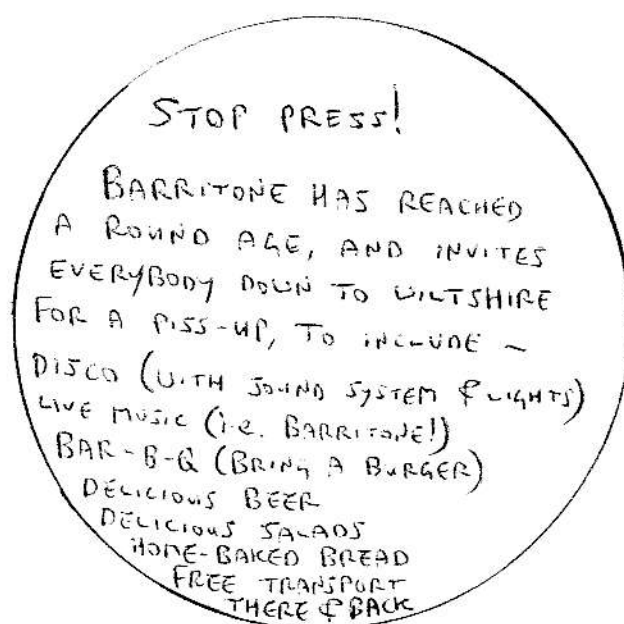 STOP PRESS!
BARRITONE HAS REACHED
A ROUND AGE, AND INVITES
EVERYBODY DOWN TO WILTSHIRE
FOR A PISS-UP, TO INCLUDE ~
DISCO (WITH SOUND SYSTEM & LIGHTS)
LIVE MUSIC (i.e. BARRITONE!)
BAR-B-Q (BRING A BURGER)
DELICIOUS BEER
DELICIOUS SALADS
HOME-BAKED BREAD
FREE TRANSPORT
THERE & BACK